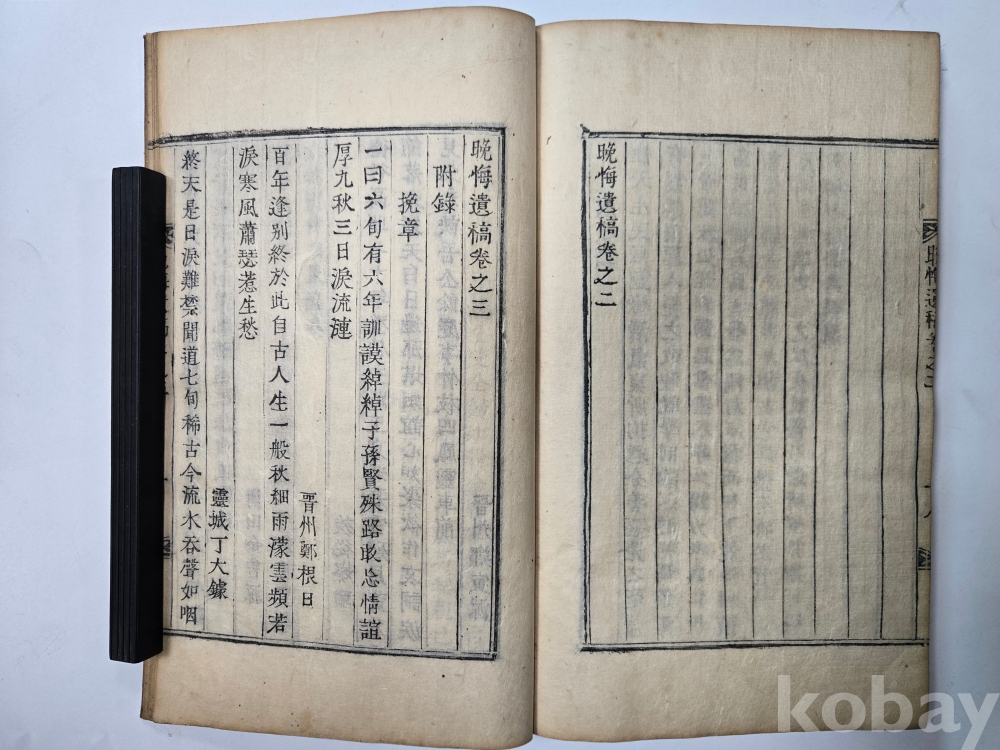 晩悔遺稿卷之二
晩悔遺稿卷之二
晩悔遺稿卷之三
附錄
挽章
一曰六旬有六年訓謨綽綽子孫賢殊路敢忘情誼
厚九秋三日淚流漣
晋州鄭根日
百年逢別終於此自古人生一般秋細雨濛雲頻若
淚寒風蕭瑟惹生愁
靈城丁大鐻
終天是日淚難禁聞道七旬稀古今流水吞聲如咽
kobay